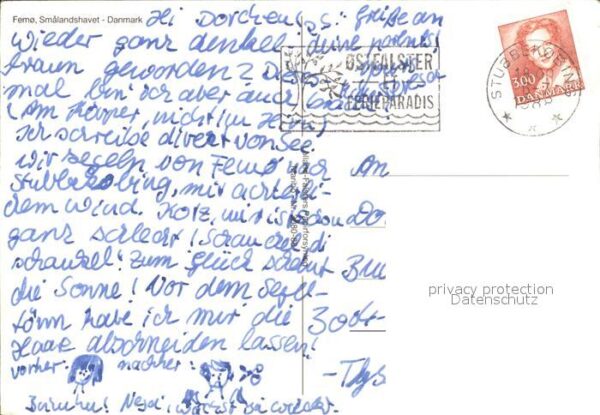 Femø, Smålandshavet - Danmark
Hi Dorchen! P.S.: Grüße an
wieder ganz dunkel deine parents!
braun geworden? Dies-
mal bin ich aber auch braun
(Am Körper, nicht im Hirn)
Ich schreibe direkt von See.
wir segeln von Femø nach
Stubbekøbing, mit achterli-
dem Wind. Kotz, mir ist schon
ganz schlecht! Schaukel di
schaukel! Zum Glück scheint
die Sonne! Vor dem Segel-
törn habe ich mir die
Haare abschneiden lassen!
vorher: nachher:
wachst wieder.
ØSTFALSTER
ET
FERIEPARADIS
STUBBEKØBING
3.00
DANMARK
An
Do
Bu
300
privacy protection
Datenschutz